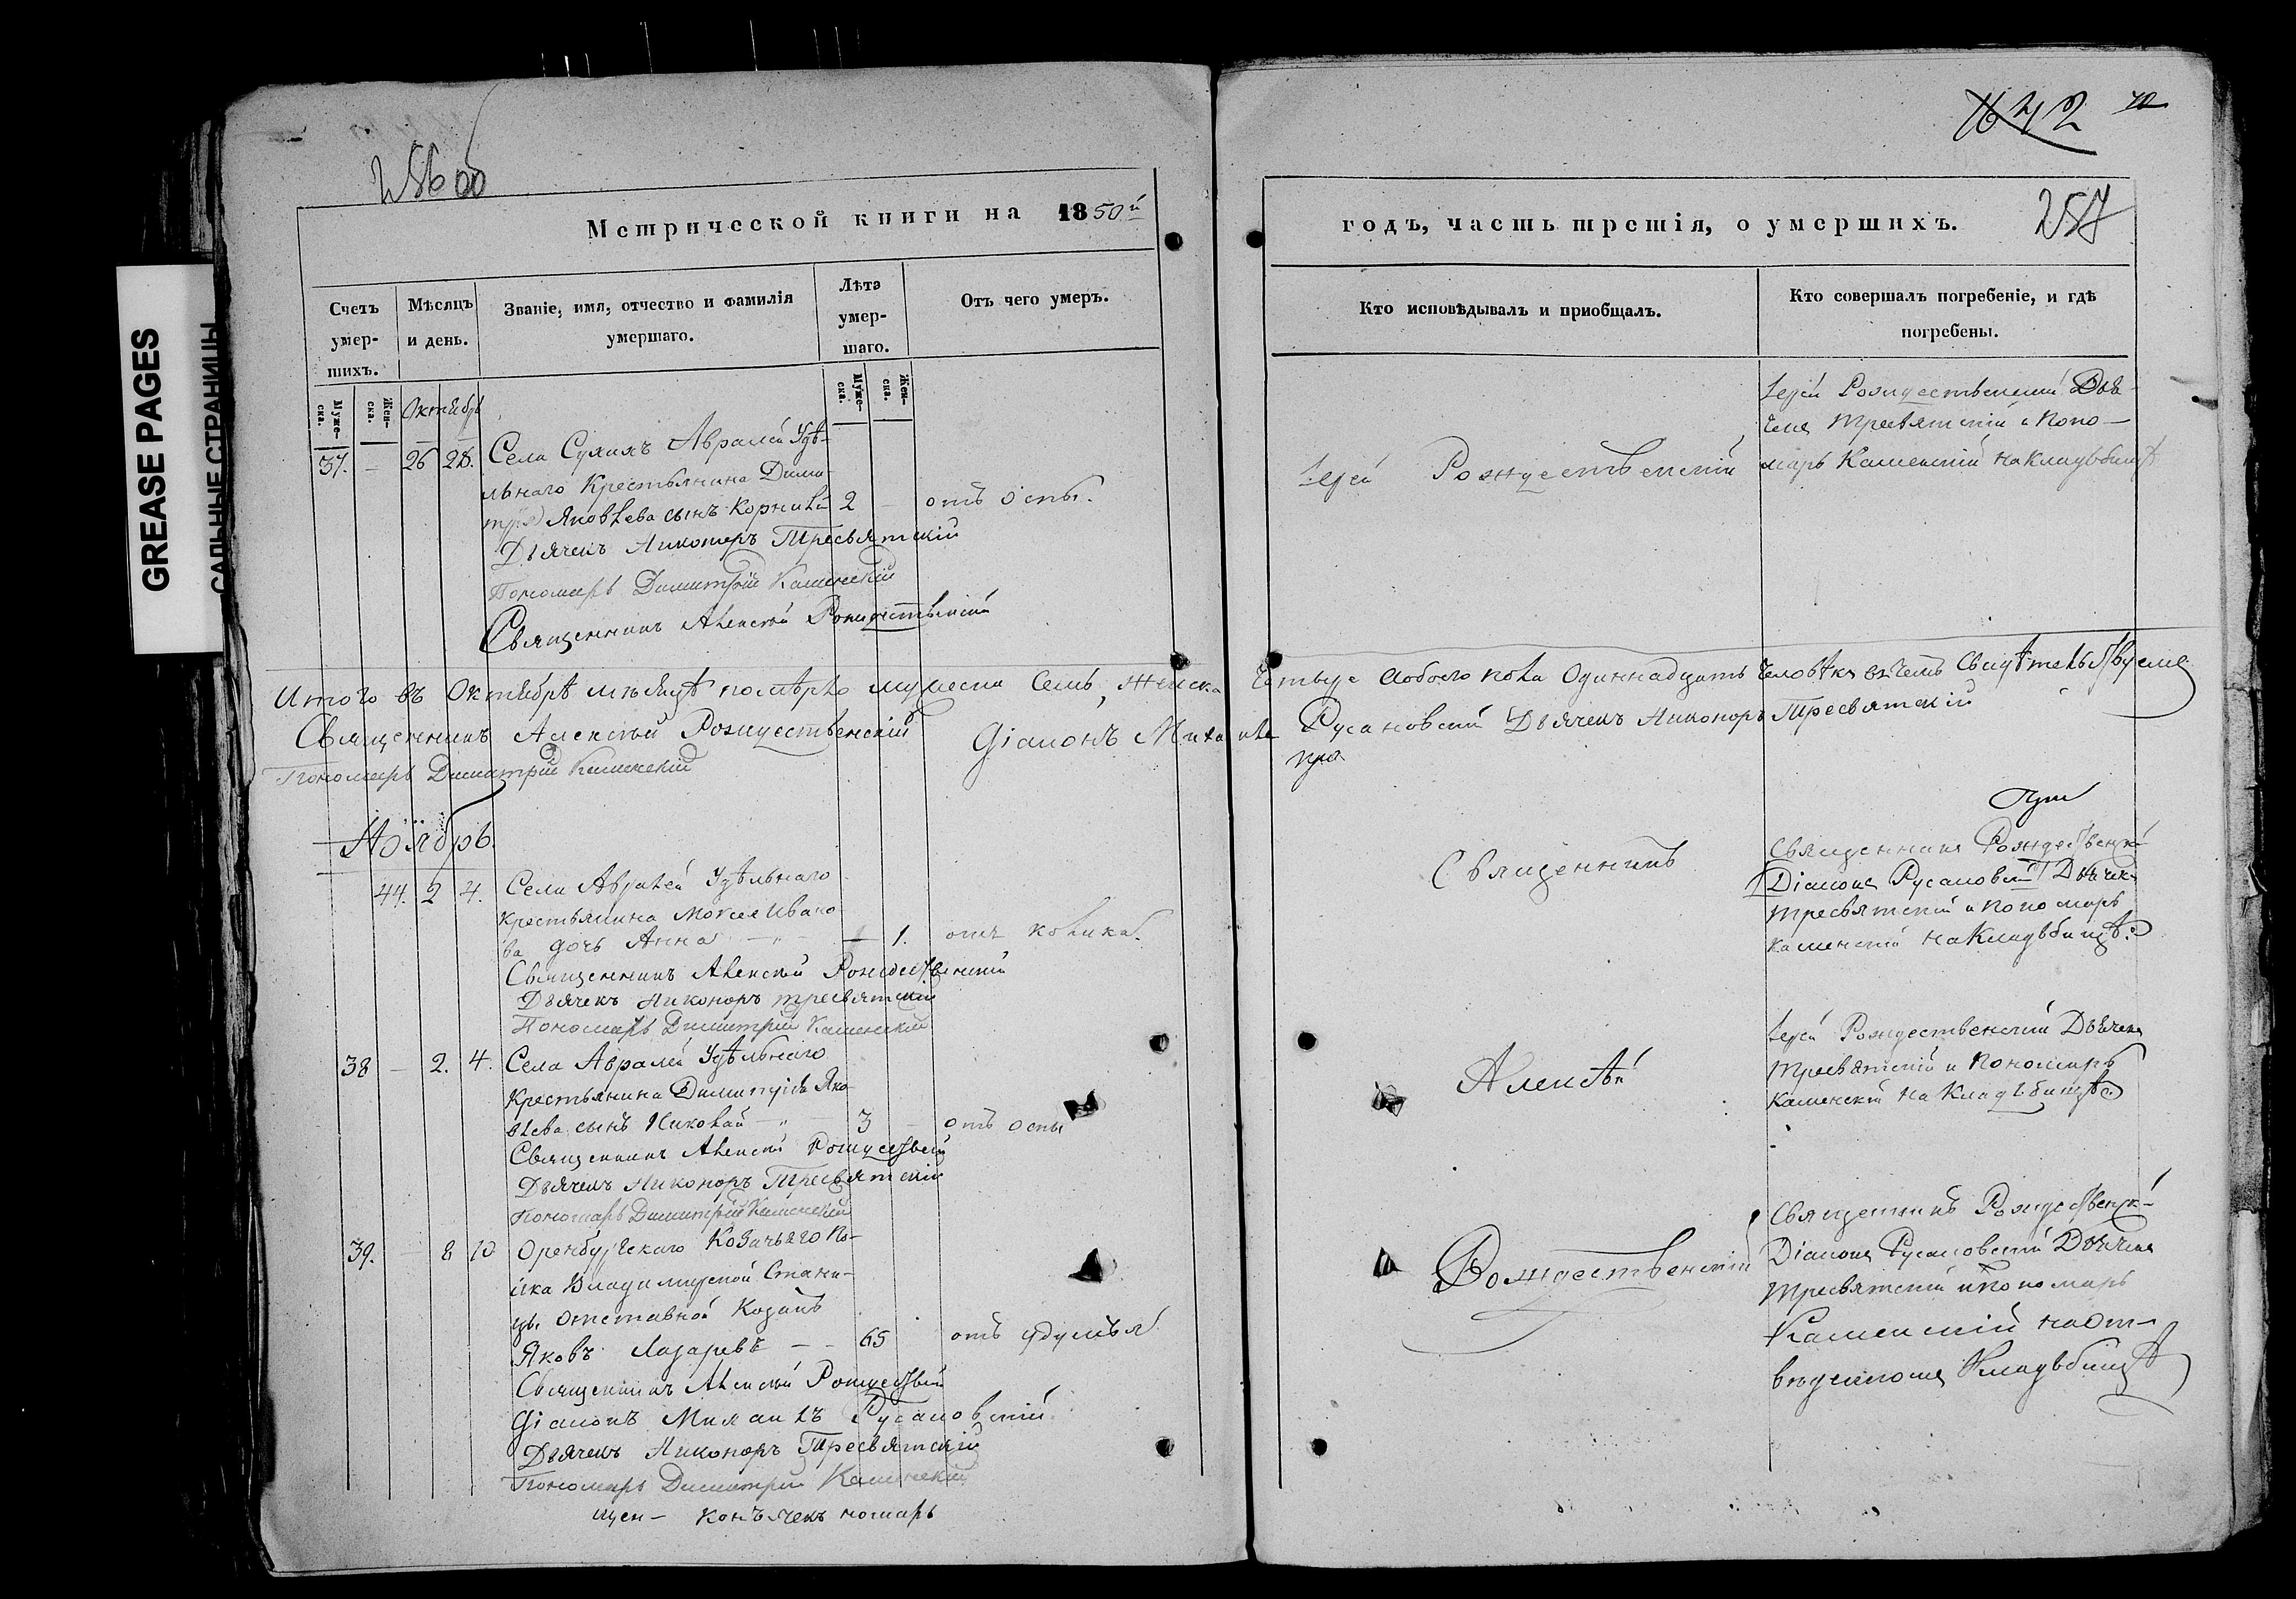 GREASE PAGES
САЛЬНЫЕ СТРАНИЦЫ
Метрической книги на 1850й
Счетъ умер-шихъ.
Мѣсяцъ и день.
Званіе, имя, отчество и фамилія умершаго.
Лѣта умер-шаго.
Отъ чего умеръ.
Муже-ска.
Жен-ска.
Октябрь
Муже-ска.
Жен-ска.
Села Аврамей Удѣ-
37. — 26 28.
льнаго Крестьянина Дими-
трія Яковлева сынъ Корнилй 2 — отъ оспы.
Дьячекъ Никоноръ Тресвятскій
Пономарь Димитрій Каменскій
Священникъ Алексѣй Рождественскій
Итого въ Октябрѣ мѣсяцѣ померло мужеска Семь, женска
Священникъ Алексѣй Рождественскій Діаконъ Михаилъ
Пономарь Димитрій Каменскій
Ноябрь.
44. 2 4. Села Авралей Удѣльнаго
Крестьянина Мокея Ивано-
ва дочь Анна — 1. отъ колика.
Священникъ Алексѣй Рождественскій
Дьячекъ Никоноръ Тресвятскій
Пономарь Димитрій Каменскій
38 — 2. 4. Села Авралей Удѣльнаго
Крестьянина Димитрія Яко-
влева сынъ Николай — 3 — отъ оспы
Священникъ Алексѣй Рождествен
Дьячекъ Никоноръ Тресвятскій
Пономарь Димитрій Каменскій
39. — 8 10 Оренбургскаго Козачьяго По-
лка Владимирской Стани-
цы отставной Козакъ
Яковъ Лазаревъ — — 65 отъ удушья
Священникъ Алексѣй Рождествен
Діаконъ Михаилъ Русановскій
Дьячекъ Никоноръ Тресвятскій
Пономарь Димитрій Каменскій
щен- конъ ячекъ номарь
642
257
годъ, часть третія, о умершихъ.
Кто исповѣдывалъ и приобщалъ.
Кто совершалъ погребеніе, и гдѣ погребены.
Іерей Рождественскій
Іерей Рождественскій Дья-
чекъ Тресвятскій и Поно-
марь Каменскій на Кладьбищѣ
Четыре а обоего пола Одиннадцать Человѣкъ въ чемъ Свидѣтельствуемъ
Русановскій Дьячекъ Никоноръ Тресвятскій
Священникъ
Алексѣй
Рождественскій
Священникъ Рождественскій
Діаконъ Русановскій Дьячекъ
Тресвятскій и Пономарь
Каменскій на Кладьбищѣ.
Іерей Рождественскій Дьячекъ
Тресвятскій и Пономарь
Каменскій на Кладьбищѣ
Священникъ Рождественскій
Діаконъ Русановскій Дьячекъ
Тресвятскій и Пономарь
Каменскій на от-
веденномъ Кладьбищѣ